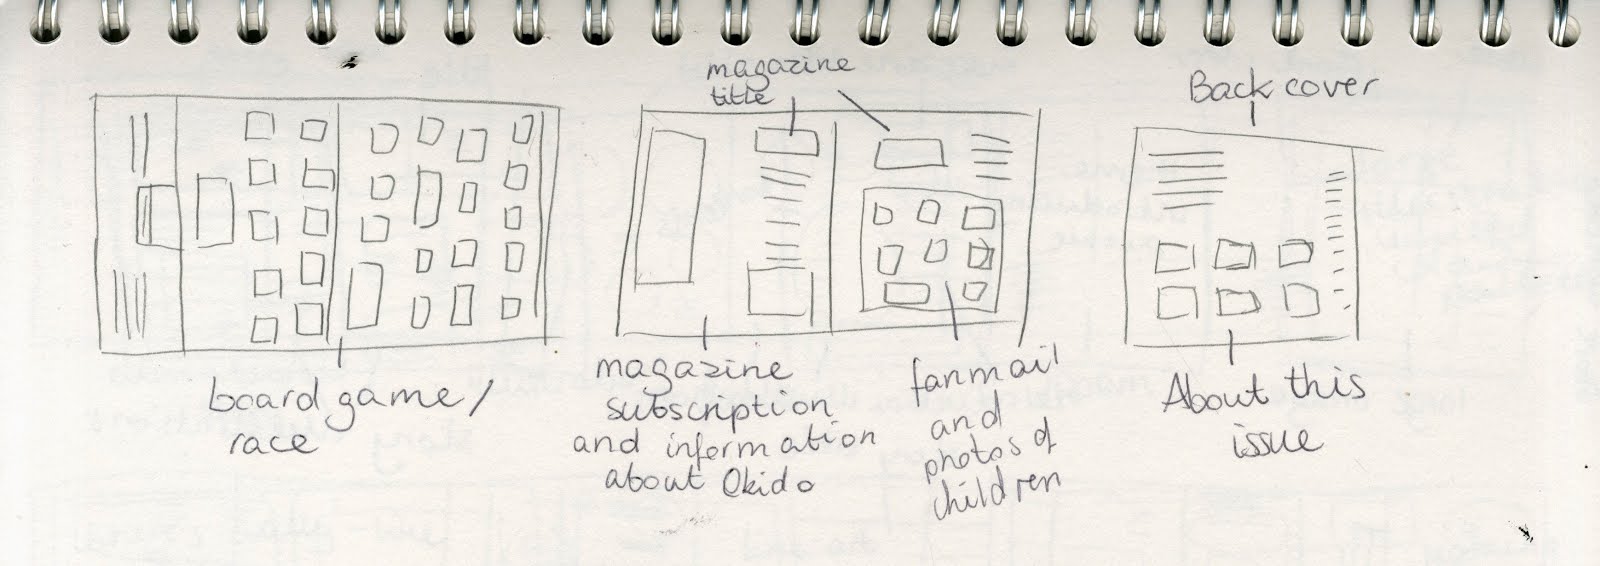 magazine
title
Back cover
board game/
race
magazine
subscription
and information
about Okido
fanmail
and
photos of
children
About this
issue